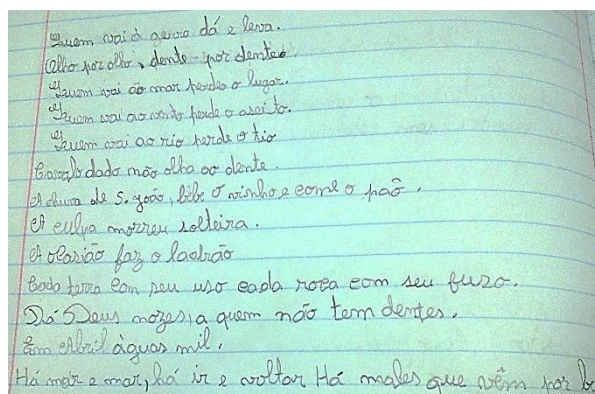 Quem vai à gerra dá e leva.
Olho por olho, dente por dente.
Quem vai ao mar perdeo o lugar.
Quem vai ao vento perde o aseito.
Quem vai ao rio perde o tio
Cavalo dado não olha ao dente.
A chuva de S. João, bibe o vinho e come o paô.
A culpa morreu solteira.
A ocasião faz o ladrão
Cada terra com seu uso cada roca com seu fuzo.
Dá Deus nozes, a quem não tem dentes.
Em Abril àguas mil.
Há mar e mar, há ir e voltar Há males que vêm por be